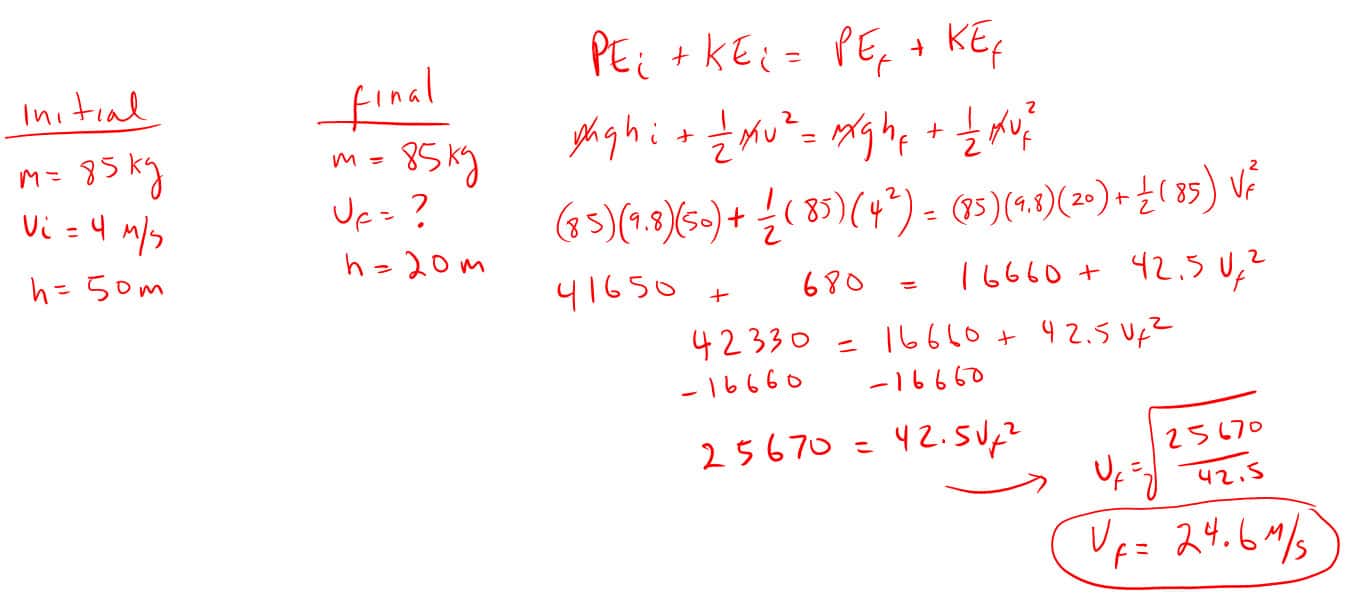 Initial
m = 85 kg
Vi = 4 m/s
h = 50 m
final
m = 85 kg
Vf = ?
h = 20 m
PEi + KEi = PEf + KEf
mghi + 1/2 mv² = mghf + 1/2 mvf²
(85)(9.8)(50) + 1/2 (85)(4²) = (85)(9.8)(20) + 1/2 (85) Vf²
41650 + 680 = 16660 + 42.5 Vf²
42330 = 16660 + 42.5 Vf²
-16660 -16660
25670 = 42.5 Vf²
Vf = √25670/42.5
Vf = 24.6 m/s